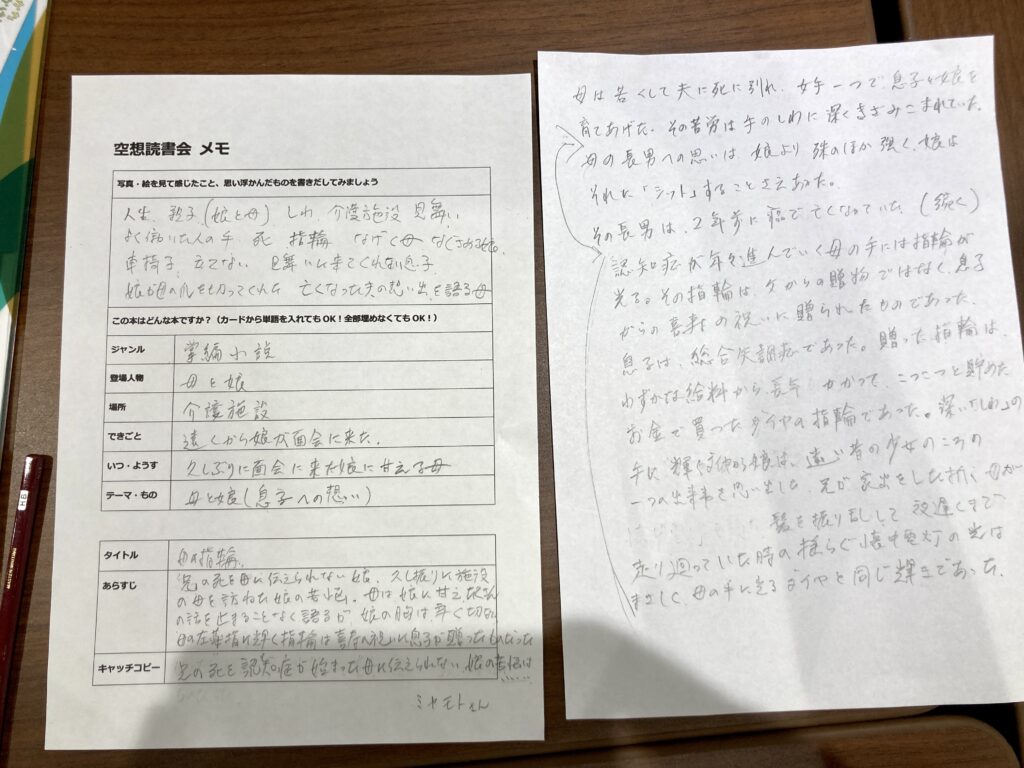 空想読書会 メモ
写真・絵を見て感じたこと、思い浮かんだものを書きだしてみましょう
人生、親子(娘と母) しわ、介護施設 見舞い
よく働いた人の手、死 指輪 なげく母 なぐさめる娘
車椅子、立てない 見舞いに来てくれない息子
娘が母の爪を切ってくれた 亡くなった夫の想い出を語る母
この本はどんな本ですか?(カードから単語を入れてもOK!全部埋めなくてもOK!)
ジャンル 掌編小説
登場人物 母と娘
場所 介護施設
できごと 遠くから娘が面会に来た。
いつ・ようす 久しぶりに面会に来た娘に甘える母
テーマ・もの 母と娘(息子への想い)
タイトル 母の指輪
あらすじ 兄の死を母に伝えられない娘、久し振りに施設
の母を訪ねた娘の苦悩。母は娘に甘え
の話を止まることなく語るが、娘の胸は辛く切ない
母の左薬指に輝く指輪は喜寿の祝いに息子が贈ったものだった
キャッチコピー 兄の死を認知症が始まった母に伝えられない娘の苦悩は
ミヤモトさん
HB
母は若くして夫に死に別れ、女手一つで息子と娘を
育てあげた。その苦労は手のしわに深くきざみこまれていた。
母の長男への思いは、娘より殊のほか強く、娘は
それに「シット」することさえあった。
その長男は、2年前に癌で亡くなっていた (続く)
認知症が年々進んでいく母の手には指輪が
光る。その指輪は、夫からの贈物ではなく、息子
からの喜寿の祝いに贈られたものであった。
息子は、統合失調症であった。贈った指輪は、
わずかな給料から長年かかって、こつこつと貯めた
お金で買ったダイヤの指輪であった。深い「しわ」の
手に輝く 娘は、遠い昔の少女のころの
一つの出来事を思い出した。兄が家出をした折、母が
髪を振り乱して夜遅くまで
走り廻っていた時の揺らぐ懐中電灯の光は
まさしく、母の手に光るダイヤと同じ輝きであった。